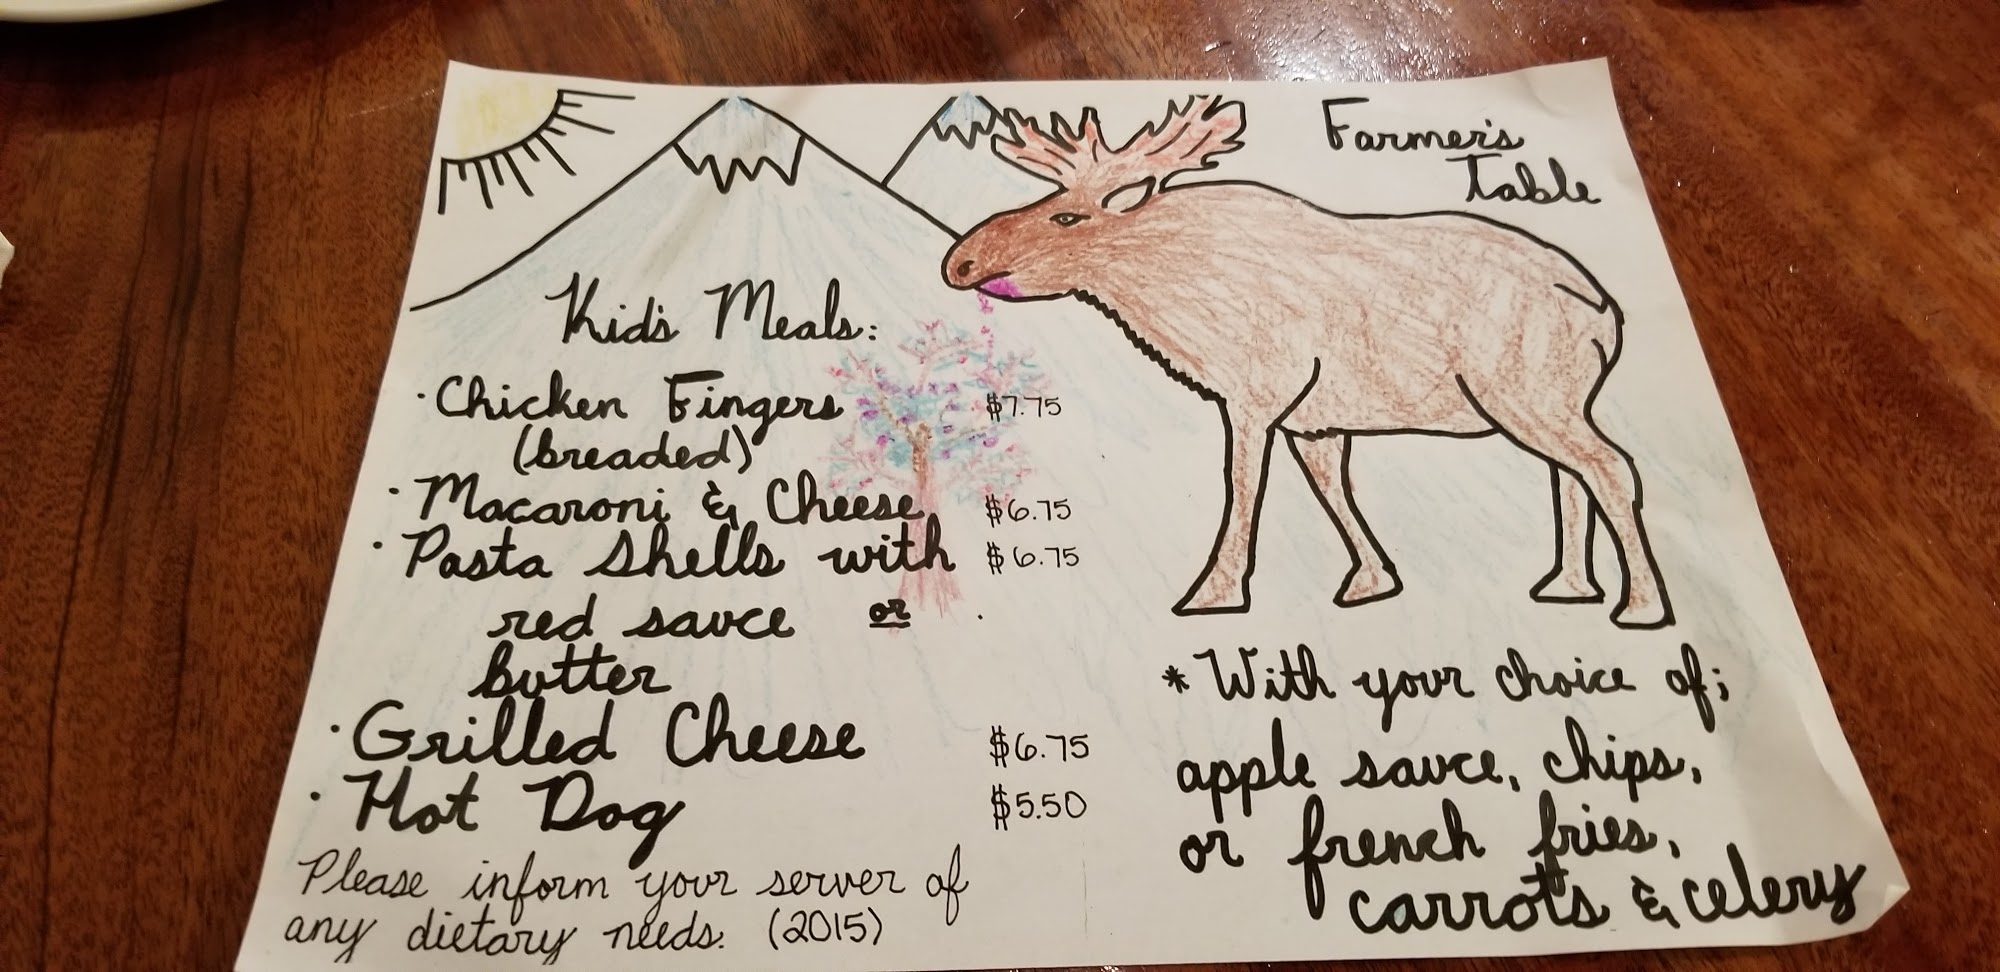 Farmer's
Table
Kid's Meals:
· Chicken Fingers $7.75
(breaded)
· Macaroni & Cheese $6.75
· Pasta Shells with $6.75
red sauce or
butter
· Grilled Cheese $6.75
· Hot Dog $5.50
Please inform your server of
any dietary needs. (2015)
* With your choice of;
apple sauce, chips,
or french fries,
carrots & celery